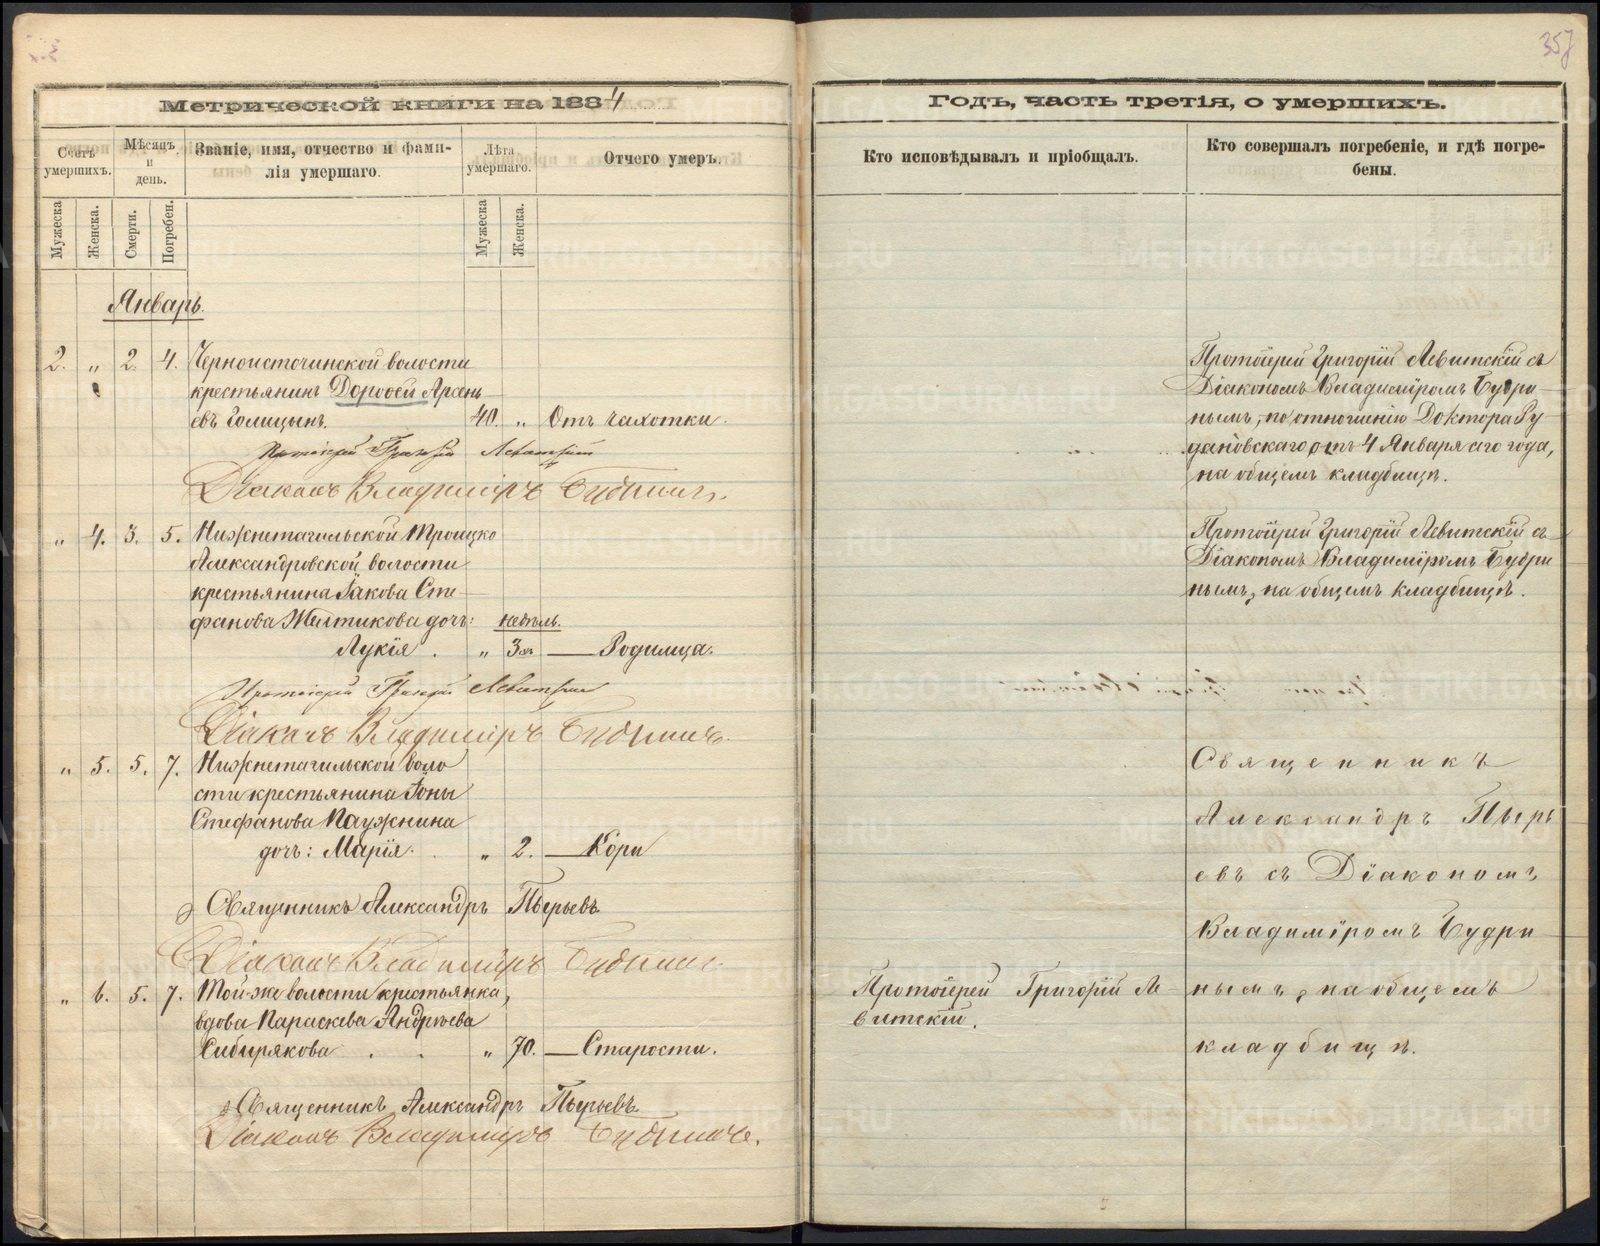 357
Метрической книги на 1884
Годъ, часть третія, о умершихъ.
Счетъ умершихъ.
Мѣсяцъ и день.
Званіе, имя, отчество и фами-
лія умершаго.
Лѣта умершаго.
Отчего умеръ.
Кто исповѣдывалъ и пріобщалъ.
Кто совершалъ погребеніе, и гдѣ погре-
бены.
Мужеска
Женска.
Смерти.
Погребен.
Мужеска
Женска.
Январь.
2. „ 2. 4. Черноисточинской волости
крестьянинъ Дороѳей Арсень
евъ Голицынъ. 40. „ Отъ чахотки.
Протоіерей Григорій Левитскій
Діаконъ Владиміръ Будринъ.
Протоіерей Григорій Левитскій съ
Діакономъ Владиміромъ Будри-
нымъ, по отношенію Доктора Ру
дановскаго отъ 4 Января сего года,
на общемъ кладбищѣ.
„ 4. 3. 5. Нижнетагильской Троицко
Александровской волости
крестьянина Іакова Сте-
фанова Желтикова дочь: недѣль.
Лукія . „ 3хъ — Родимца.
Протоіерей Григорій Левитскій
Діаконъ Владиміръ Будринъ.
Протоіерей Григорій Левитскій съ
Діакономъ Владиміромъ Будри
нымъ, на общемъ кладбищѣ.
„ 5. 5. 7. Нижнетагильской воло
сти крестьянина Іоны
Стефанова Паужнина
дочь: Марія. „ 2. — Кори
Священникъ Александръ Пырьевъ
Діаконъ Владиміръ Будринъ.
„ 6. 5. 7. Той-же волости крестьянка,
вдова Параскева Андреева
Сибирякова . . „ 70. — Старости.
Священникъ Александръ Пырьевъ
Діаконъ Владиміръ Будринъ.
Протоіерей Григорій Ле-
витскій.
Священникъ
Александръ Пырь
евъ съ Діакономъ
Владиміромъ Будри
нымъ, на общемъ
кладбищѣ.
METRIKI.GASO-URAL.RU